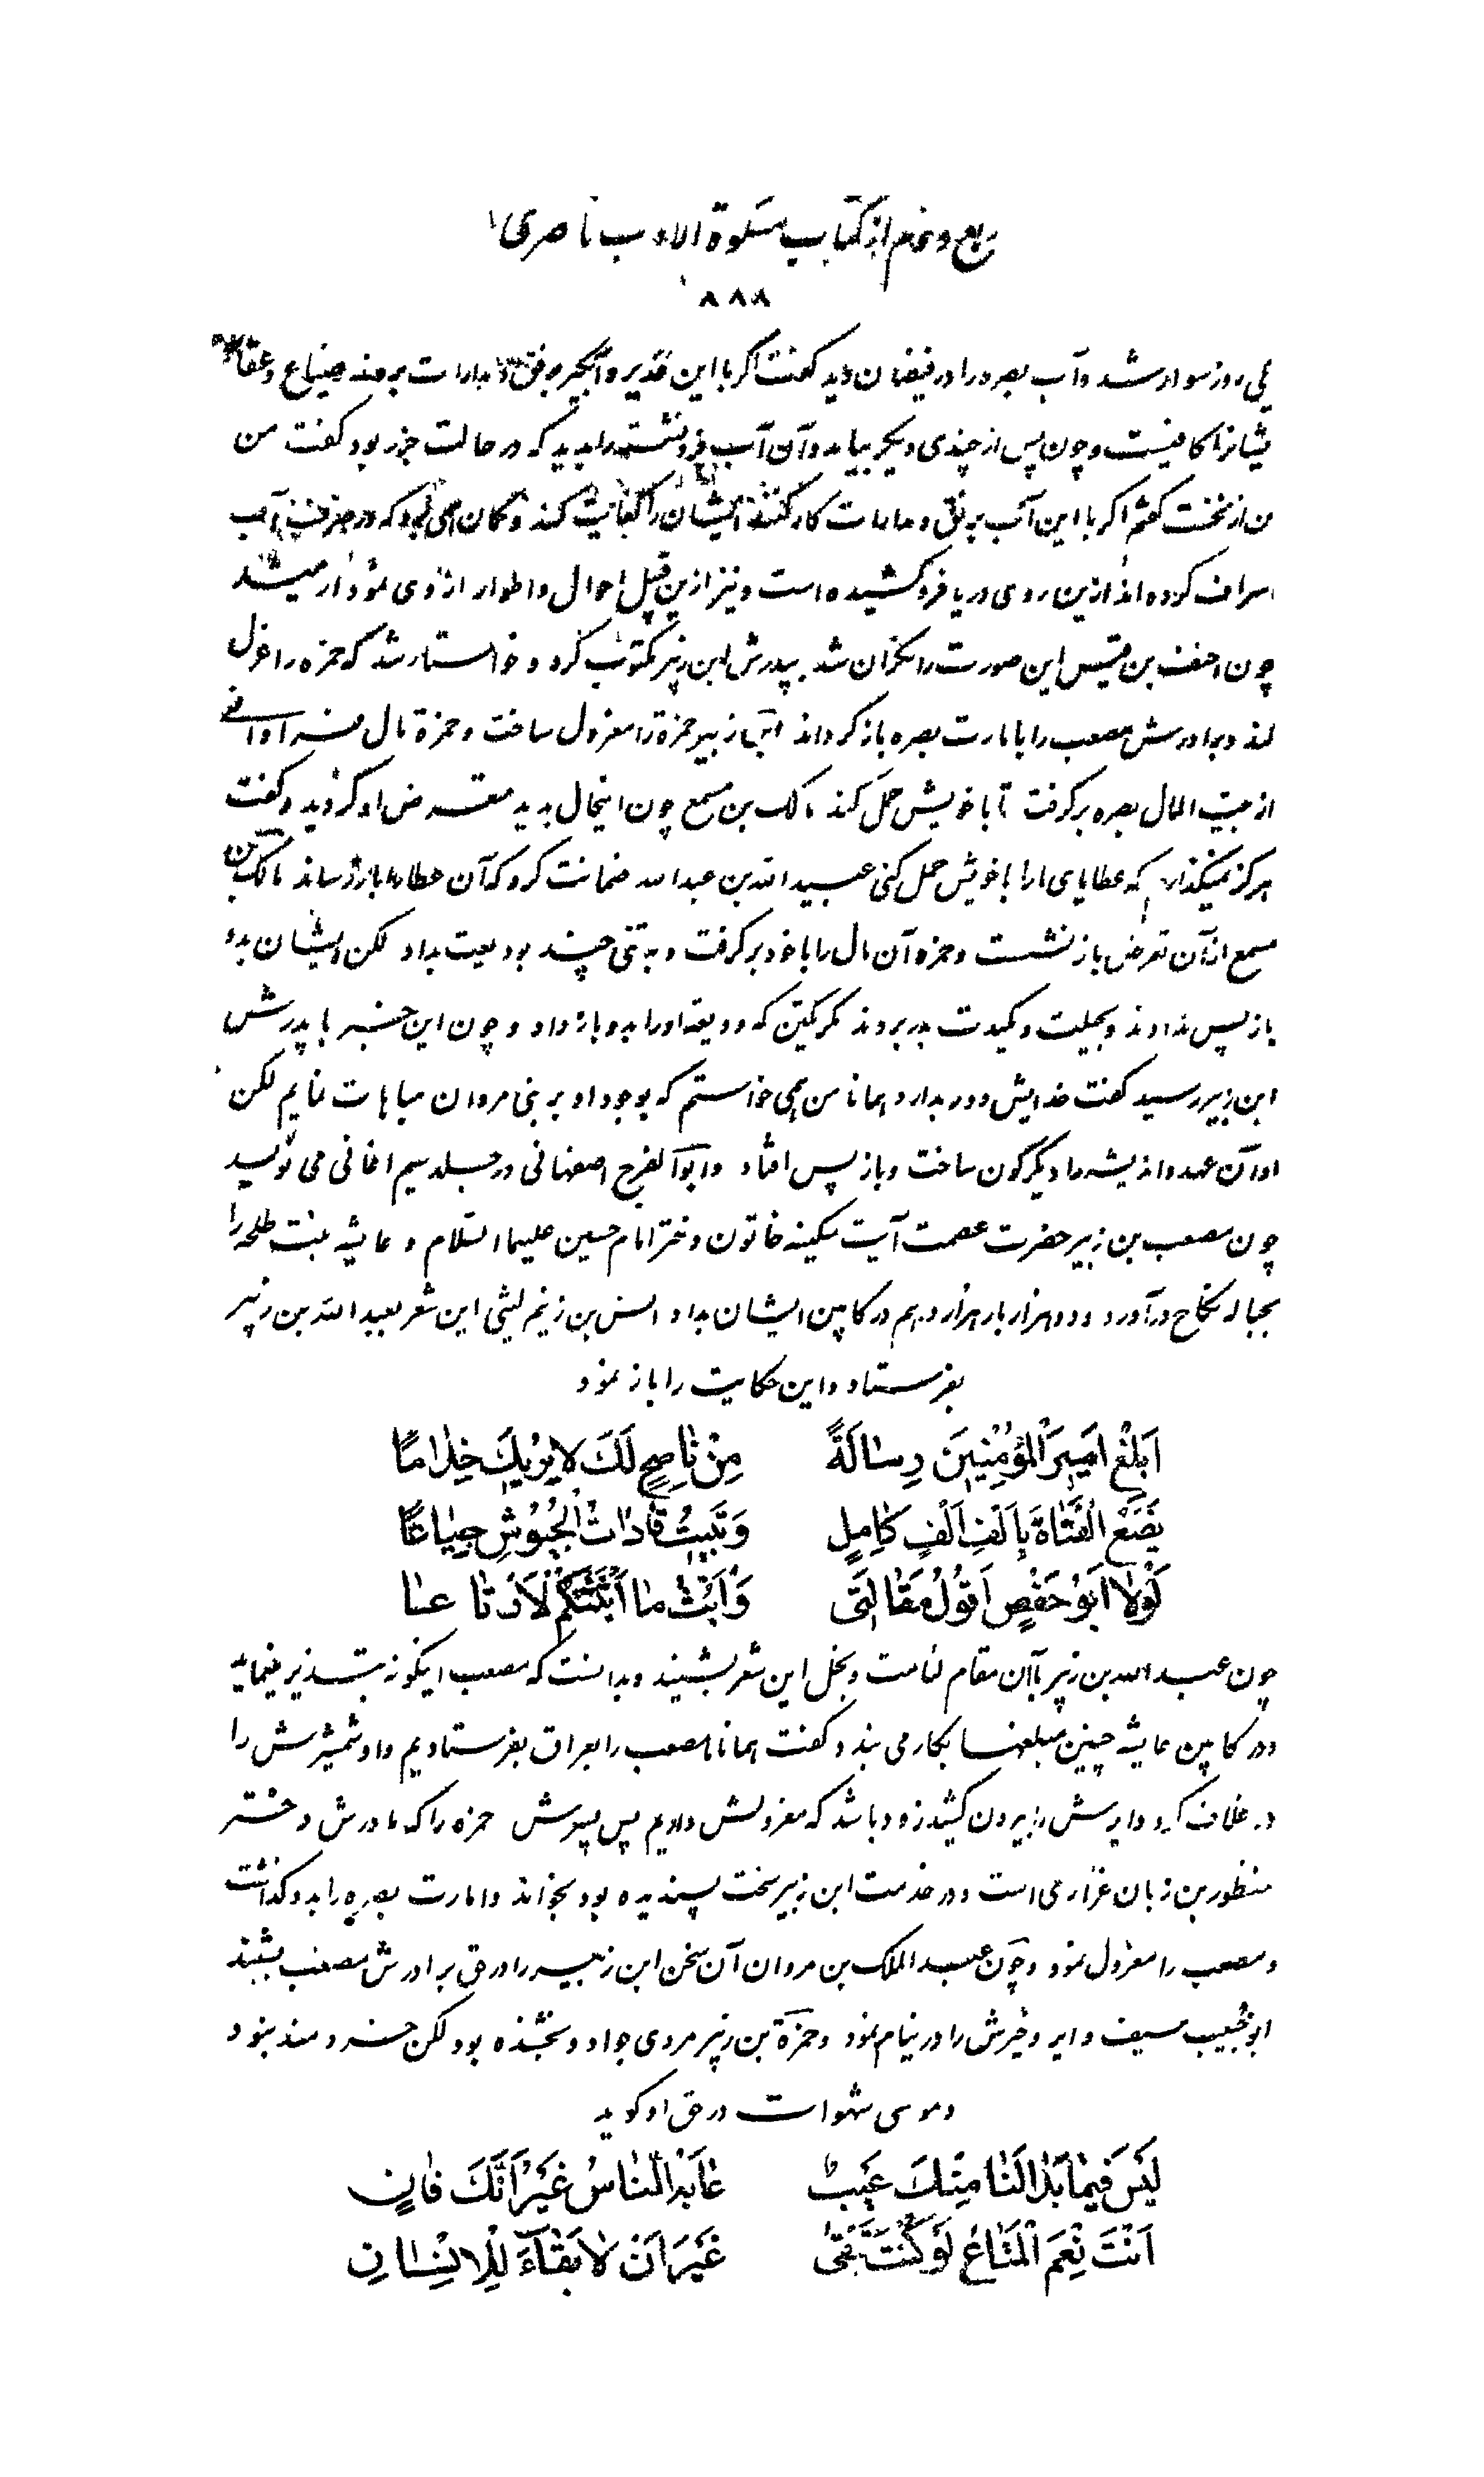 ربع دوم از کتاب مشکوة الادب ناصری
۸۸۸
روز سوار شد و آب بصره را در فیضان دید گفت اگر با این غدیر و آبگیر برفق و مدارات بروند ضیاع و عقار
ایشانرا کافیست و چون پس از چندی دیگر بیامد و آن آب فرو نشسته را بدید که در حالت جزر بود گفت من
من از نخست گفتم اگر با این آب برفق و مدارات کار کنند ایشان را کفایت کند و گمان همی برد که در صرف آب
اسراف کرده اند ازین روی دریا فرو کشیده است و نیز ازین قبیل احوال و اطوار از وی نمودار میشد
چون احنف بن قیس این صورت را نگران شد بپدرش ابن زبیر مکتوب کرد و خواستار شد که حمزه را عزل
کند و برادرش مصعب را بامارت بصره باز گرداند ابن زبیر حمزة را معزول ساخت و حمزة مال فراوانی
از بیت المال بصره برگرفت تا با خویش حمل کند مالک بن مسمع چون اینحال بدید متعرض او گردید و گفت
هرگز نمیگذاریم که عطایای ما را با خویش حمل کنی عبیدالله بن عبدالله ضمانت کرد که آن عطایا باز رساند مالک بن
مسمع از آن تعرض باز نشست و حمزه آن مال را با خود برگرفت و به تنی چند بودیعت بداد لکن ایشان بدو
باز پس ندادند و بحیلت و کیدت بدر بردند مگر یکتن که ودیعه او را بدو باز داد و چون این خبر با پدرش
ابن زبیر رسید گفت خدایش دور بدارد همانا من همی خواستم که بوجود او بر بنی مروان مباهات نمایم لکن
او آن عهد و اندیشه ما دیگرگون ساخت و باز پس افتاد و ابو الفرج اصفهانی در جلد سیم اغانی می نویسد
چون مصعب بن زبیر حضرت عصمت آیت سکینه خاتون دختر امام حسین علیهما السّلام و عایشه بنت طلحه را
بحباله نکاح درآورد و دو هزار بار هزار درهم در کابین ایشان بداد انس بن زنیم لیثی این شعر بعبد الله بن زبیر
بفرستاد و این حکایت را باز نمود
اَبْلِغْ اَمیرَ الْمُؤْمِنینَ رِسالَةً مِنْ ناصِحٍ لَكَ لا یُریكَ خِداعًا
بُضْعُ الْفَتاةِ بِاَلْفِ اَلْفٍ کامِلٍ وَ تَبیتُ قاداتُ الْجُیُوشِ جِیاعًا
لَوْلا اَبُو حَفْصٍ اَقُولُ مَقالَتی وَ اَبُثُّ ما اَبْثَثْتُکُمْ لَارْتاعا
چون عبدالله بن زبیر با آن مقام لئامت و بخل این شعر بشنید و بدانست که مصعب اینگونه تبذیر مینماید
و در کابین عایشه چنین مبلغها بکار می بندد گفت همانا مصعب را بعراق بفرستادیم و او شمشیرش را
در غلاف کرد و ایرش را بیرون کشید زود باشد که معزولش داریم پس پسرش حمزه را که مادرش دختر
منظور بن زبان فزاری است و در خدمت ابن زبیر سخت پسندیده بود بخواند و امارت بصره را بدو گذاشت
و مصعب را معزول نمود و چون عبد الملک بن مروان آن سخن ابن زبیر را در حق برادرش مصعب بشنید
ابو خبیب سیف و ایر و خیرش را در نیام نمود و حمزة بن زبیر مردی جواد و بخشنده بود لکن خردمند نبود
و موسی شهوات در حق او گوید
لَیْسَ فیما بَدا لَنا مِنْكَ عَیْبٌ عابَهُ النّاسُ غَیْرَ اَنَّكَ فانٍ
اَنْتَ نِعْمَ الْمَتاعُ لَوْ کُنْتَ تَبْقی غَیْرَ اَنْ لا بَقاءَ لِلْاِنْسانِ